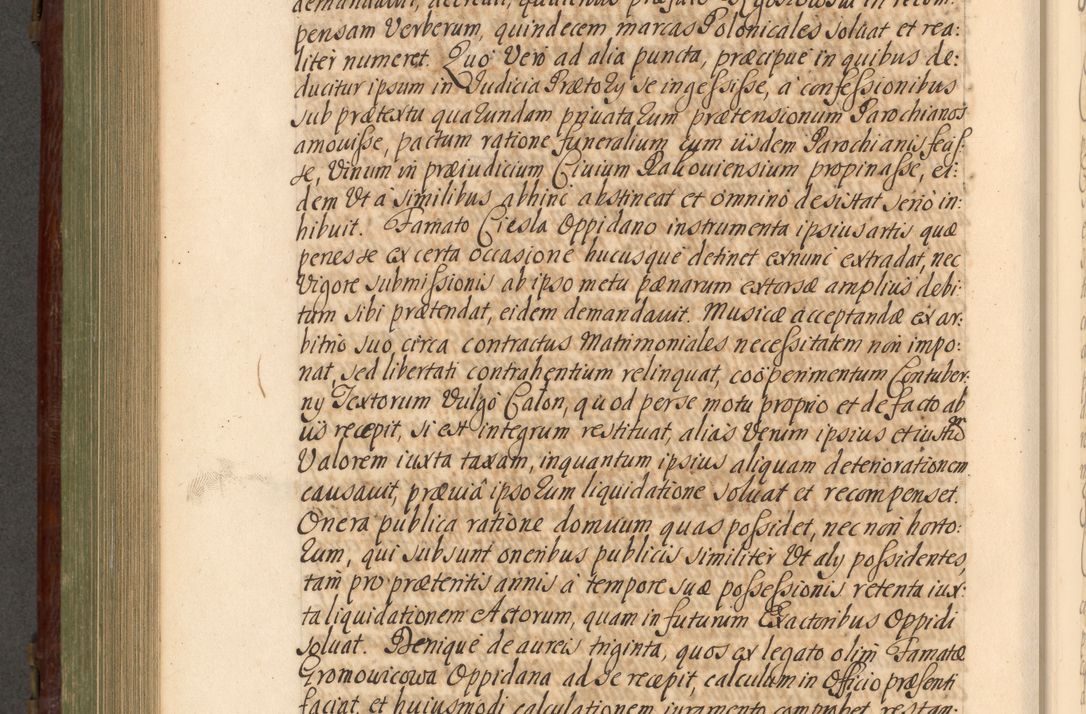 pensam Verberum, quindecem marcas Polonicales soluat et rea:
liter numeret. Quo Vero ad alia puncta, præcipue in quibus de:
ducitur ipsum in Iudicia Prætory se ingessisse, a confessionibus
sub prætextu quarundam priuatarum prætensionum Parochianos
amouisse, pactum ratione funeralium cum iisdem Parochianis feciss
se, Vinum in præiudicium Ciuium Rakouiensium propinasse, ei:
dem Vt a similibus abhinc abstineat et omnino desistat serio in:
hibuit. Famato Ciesla Oppidano instrumenta ipsius artis quæ
penes se ex certa occasione hucusque detinet exnunc extradat, nec
Vigore submissionis ab ipso metu pænarum extorsæ amplius debi:
tum sibi prætendat, eidem demandauit. Musicæ acceptandæ ex ar:
bitrio suo circa contractus Matrimoniales necessitatem non impo:
nat, sed libertati contrahentium relinquat, coöperimentum Contuber:
ny Textorum Vulgo Calon, quod per se motu proprio et de facto ab
iis recepit, si est integrum restituat, alias Verum ipsius et iustum
Valorem iuxta taxam, inquantum ipsius aliquam deteriorationem
causauit, præuiâ ipsorum liquidatione soluat et recompenset.
Onera publica ratione domuum quas possidet, nec non horto:
rum, qui subsunt oneribus publicis similiter Vt aly possidentes,
tam pro præteritis annis a tempore suæ possessionis retenta iux:
ta liquidationem Actorum, quam in futurum Exactoribus Oppidi
soluat. Denique de aureis triginta, quos ex legato olim Famatæ
Gromowicowa Oppidana ad se recepit, calculum in Officio præsenti
faciat, et huiusmodi calculationem iuramento comprobet, restan: